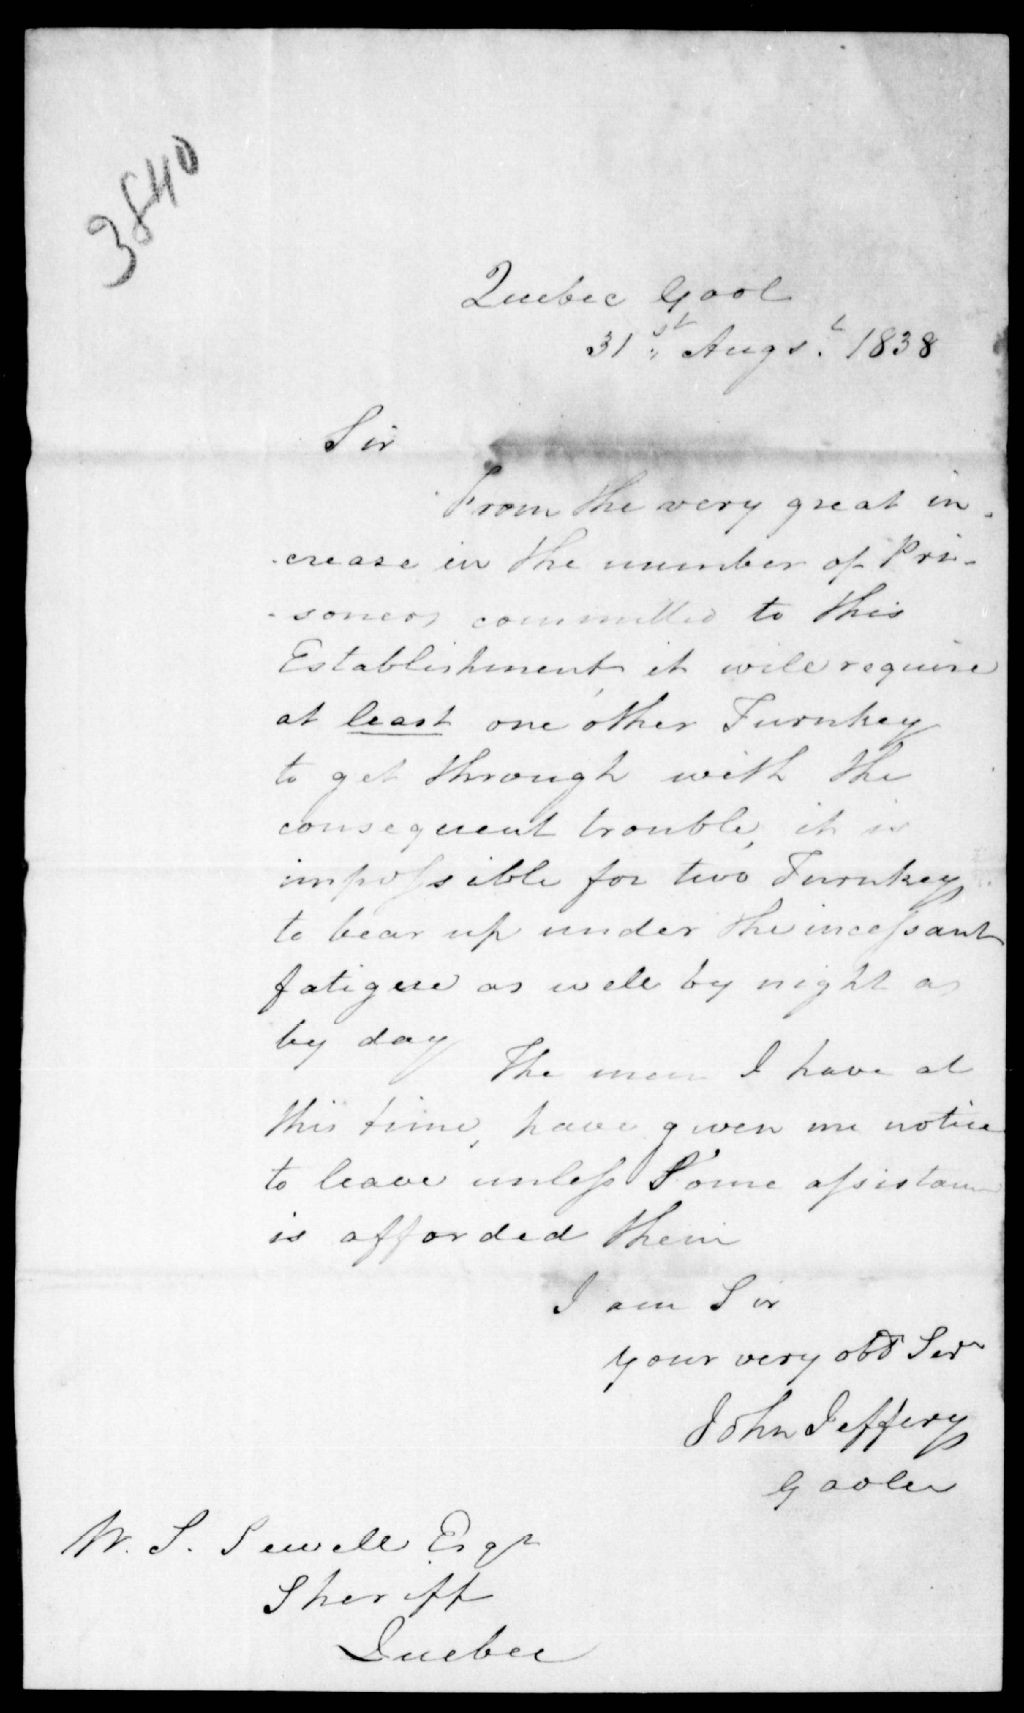 3840
Quebec Gaol
31st Augst. 1838
Sir
From the very great in-
-crease in the number of Pri-
-soners committed to this
Establishment, it will require
at least one other Turnkey
to get through with the
consequent trouble, it is
impossible for two Turnkeys
to bear up under the incessant
fatigue as well by night as
by day
The men I have at
this time, have given me notice
to leave unless Some assistance
is afforded them
I am Sir
your very obt Servt
John Jeffery
Gaoler
W. S. Sewell Esqr
Sheriff
Quebec